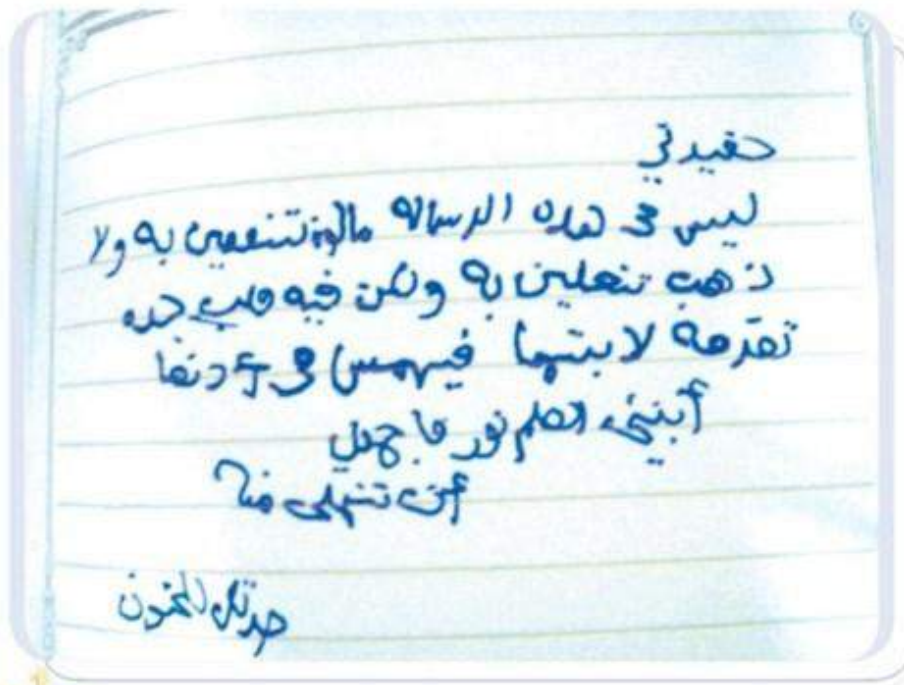 حفيدتي
ليس في هذه الرسالة مالا تنتفعين به ولا
ذهب تتحلين به ولكن فيه قلب جده
تقدمه لابنتها فيهمس في أذنها
أبنيتي العلم نور فاجهدي
أن تنهلي منه
جدتك الحنون